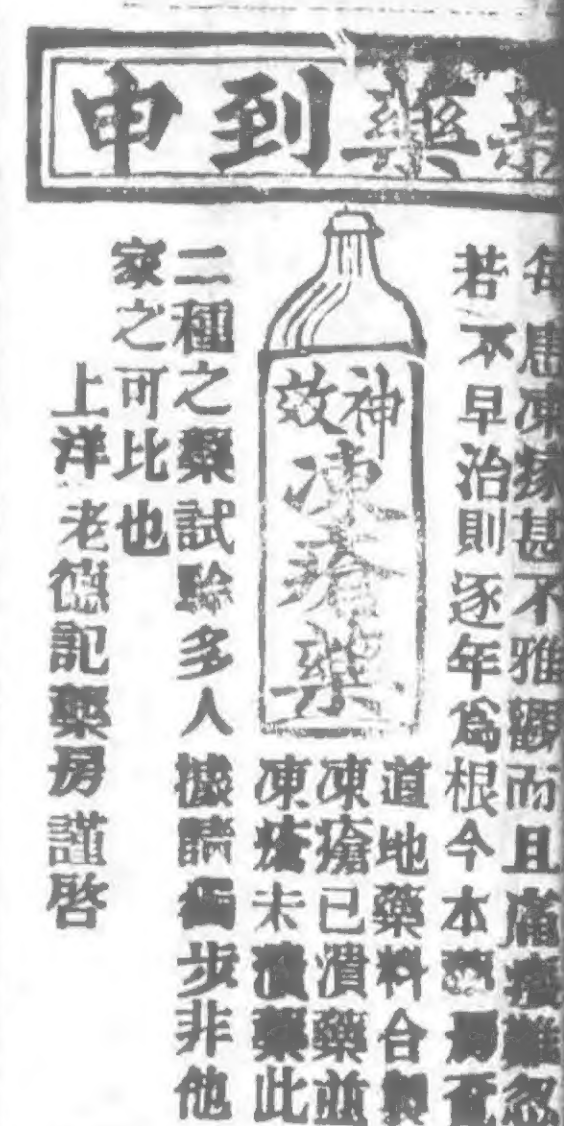 藥到申
每患凍瘃甚不雅觀而且痛癢難忍
若不早治則逐年爲根今本藥房
神效
凍瘡藥
道地藥料合製
凍瘡已潰藥並
凍瘡未潰藥此
二種之藥試驗多人據請獨步非他
家之可比也
上洋老德記藥房謹啓